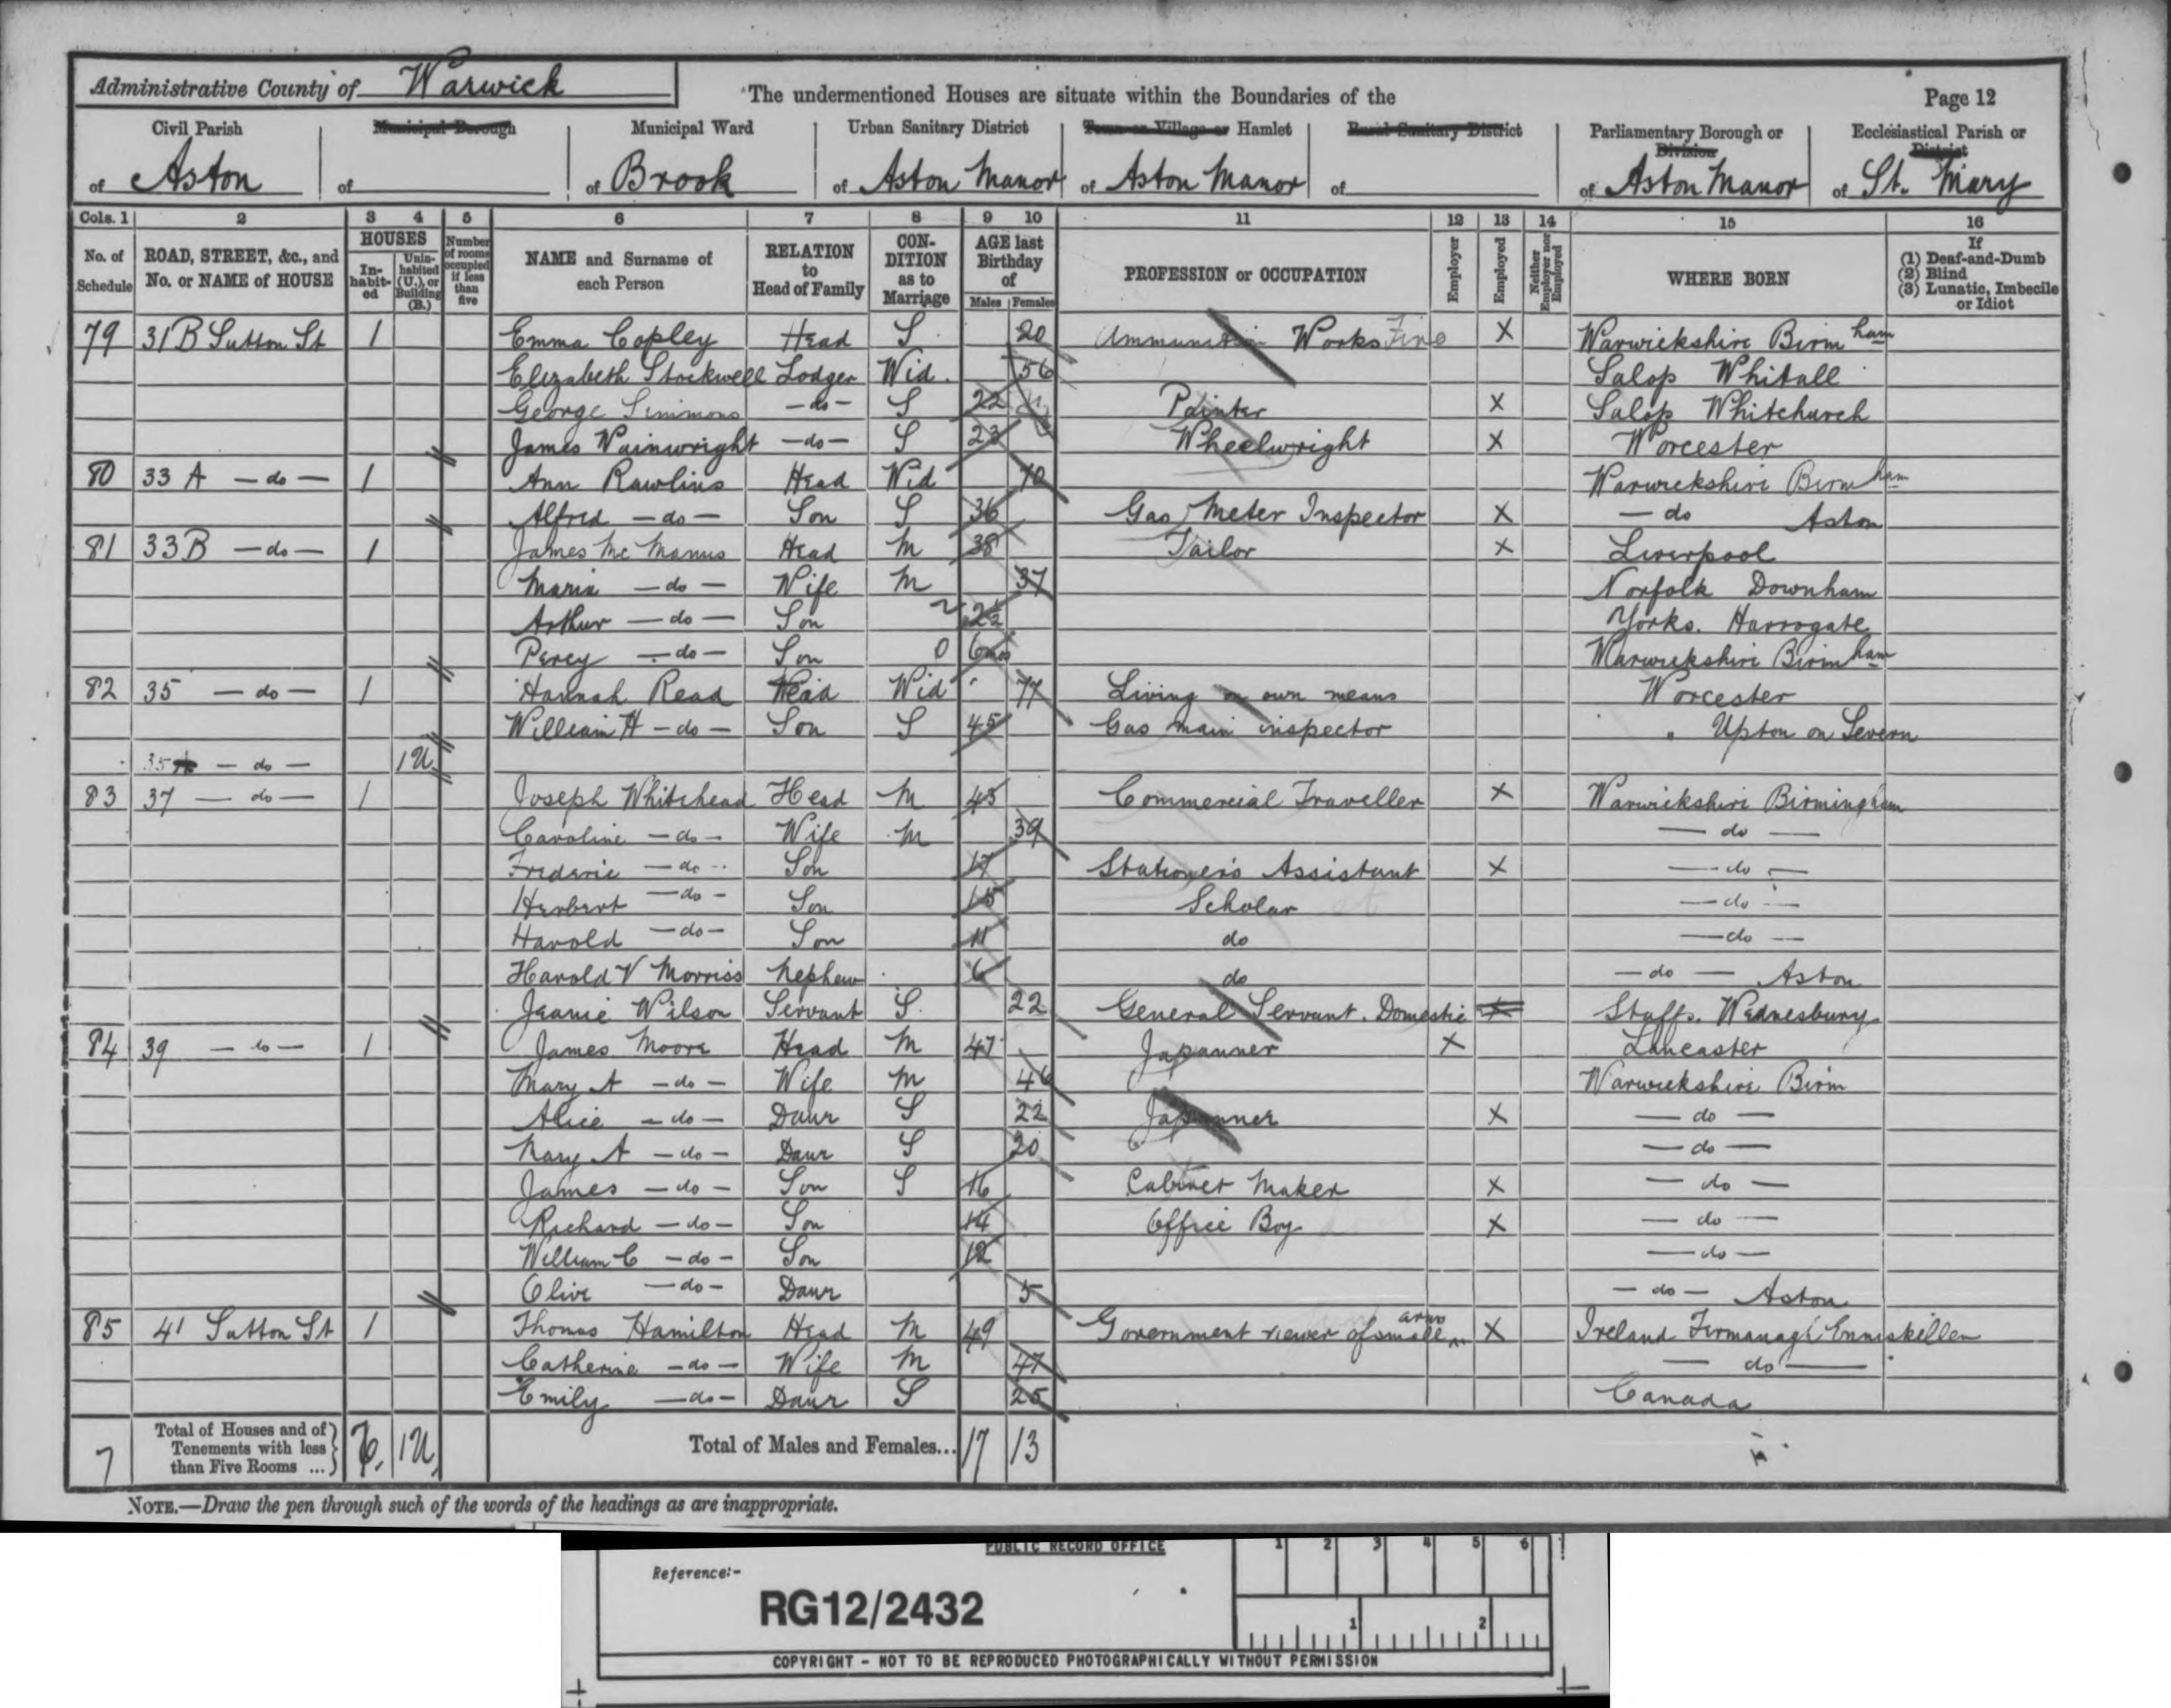 Administrative County of Warwick
The undermentioned Houses are situate within the Boundaries of the
Page 12
Civil Parish of Aston
Municipal Borough of
Municipal Ward of Brook
Urban Sanitary District of Aston Manor
Town or Village or Hamlet of Aston Manor
Rural Sanitary District of
Parliamentary Borough or Division of Aston Manor
Ecclesiastical Parish or District of St. Mary
Cols. 1 2 3 4 5 6 7 8 9 10 11 12 13 14 15 16
No. of Schedule
ROAD, STREET, &c., and No. or NAME of HOUSE
HOUSES
In-habit-ed
Unin-habited (U.), or Building (B.)
Number of rooms occupied if less than five
NAME and Surname of each Person
RELATION to Head of Family
CON-DITION as to Marriage
AGE last Birthday of
Males Females
PROFESSION or OCCUPATION
Employer
Employed
Neither Employer nor Employed
WHERE BORN
If (1) Deaf-and-Dumb (2) Blind (3) Lunatic, Imbecile or Idiot
79 31 B Sutton St 1 Emma Copley Head S 20 Ammunition Works X Warwickshire Birmham
Elizabeth Stockwell Lodger Wid. 56 Salop Whitall
George Simmons -do- S 22 Painter X Salop Whitchurch
James Wainwright -do- S 23 Wheelwright X Worcester
80 33 A -do- 1 Ann Rawlins Head Wid 70 Warwickshire Birmham
Alfred -do- Son S 36 Gas Meter Inspector X -do Aston
81 33 B -do- 1 James Mc Manus Head M 38 Tailor X Liverpool
Maria -do- Wife M 37 Norfolk Downham
Arthur -do- Son 2 Yorks. Harrogate
Percy -do- Son 6mos Warwickshire Birmham
82 35 -do- 1 Hannah Read Head Wid 77 Living on own means Worcester
William H -do- Son S 45 Gas main inspector " Upton on Severn
35 -do- 1U
83 37 -do- 1 Joseph Whitehead Head M 43 Commercial Traveller X Warwickshire Birmingham
Caroline -do- Wife M 39 -do-
Frederic -do- Son 17 Stationers Assistant X -do-
Herbert -do- Son 15 Scholar -do-
Harold -do- Son 11 do -do-
Harold V Morriss Nephew 6 do -do- Aston
Jeanie Wilson Servant S. 22 General Servant. Domestic X Staffs. Wednesbury
84 39 -do- 1 James Moore Head M 47 Japanner X Lancaster
Mary A -do- Wife M 46 Warwickshire Birm
Alice -do- Daur S 22 Japanner X -do-
Mary A -do- Daur S 20 -do-
James -do- Son S 16 Cabinet Maker X -do-
Richard -do- Son 14 Office Boy X -do-
William C -do- Son 12 -do-
Olive -do- Daur 5 -do- Aston
85 41 Sutton St 1 Thomas Hamilton Head M 49 Government viewer of small arms X Ireland Fermanagh Enniskillen
Catherine -do- Wife M 47 -do-
Emily -do- Daur S 25 Canada
7 Total of Houses and of Tenements with less than Five Rooms ... 1U. Total of Males and Females... 17 13
NOTE.—Draw the pen through such of the words of the headings as are inappropriate.
PUBLIC RECORD OFFICE
1 2 3 4 5 6
Reference:-
RG12/2432
1 2
COPYRIGHT - NOT TO BE REPRODUCED PHOTOGRAPHICALLY WITHOUT PERMISSION